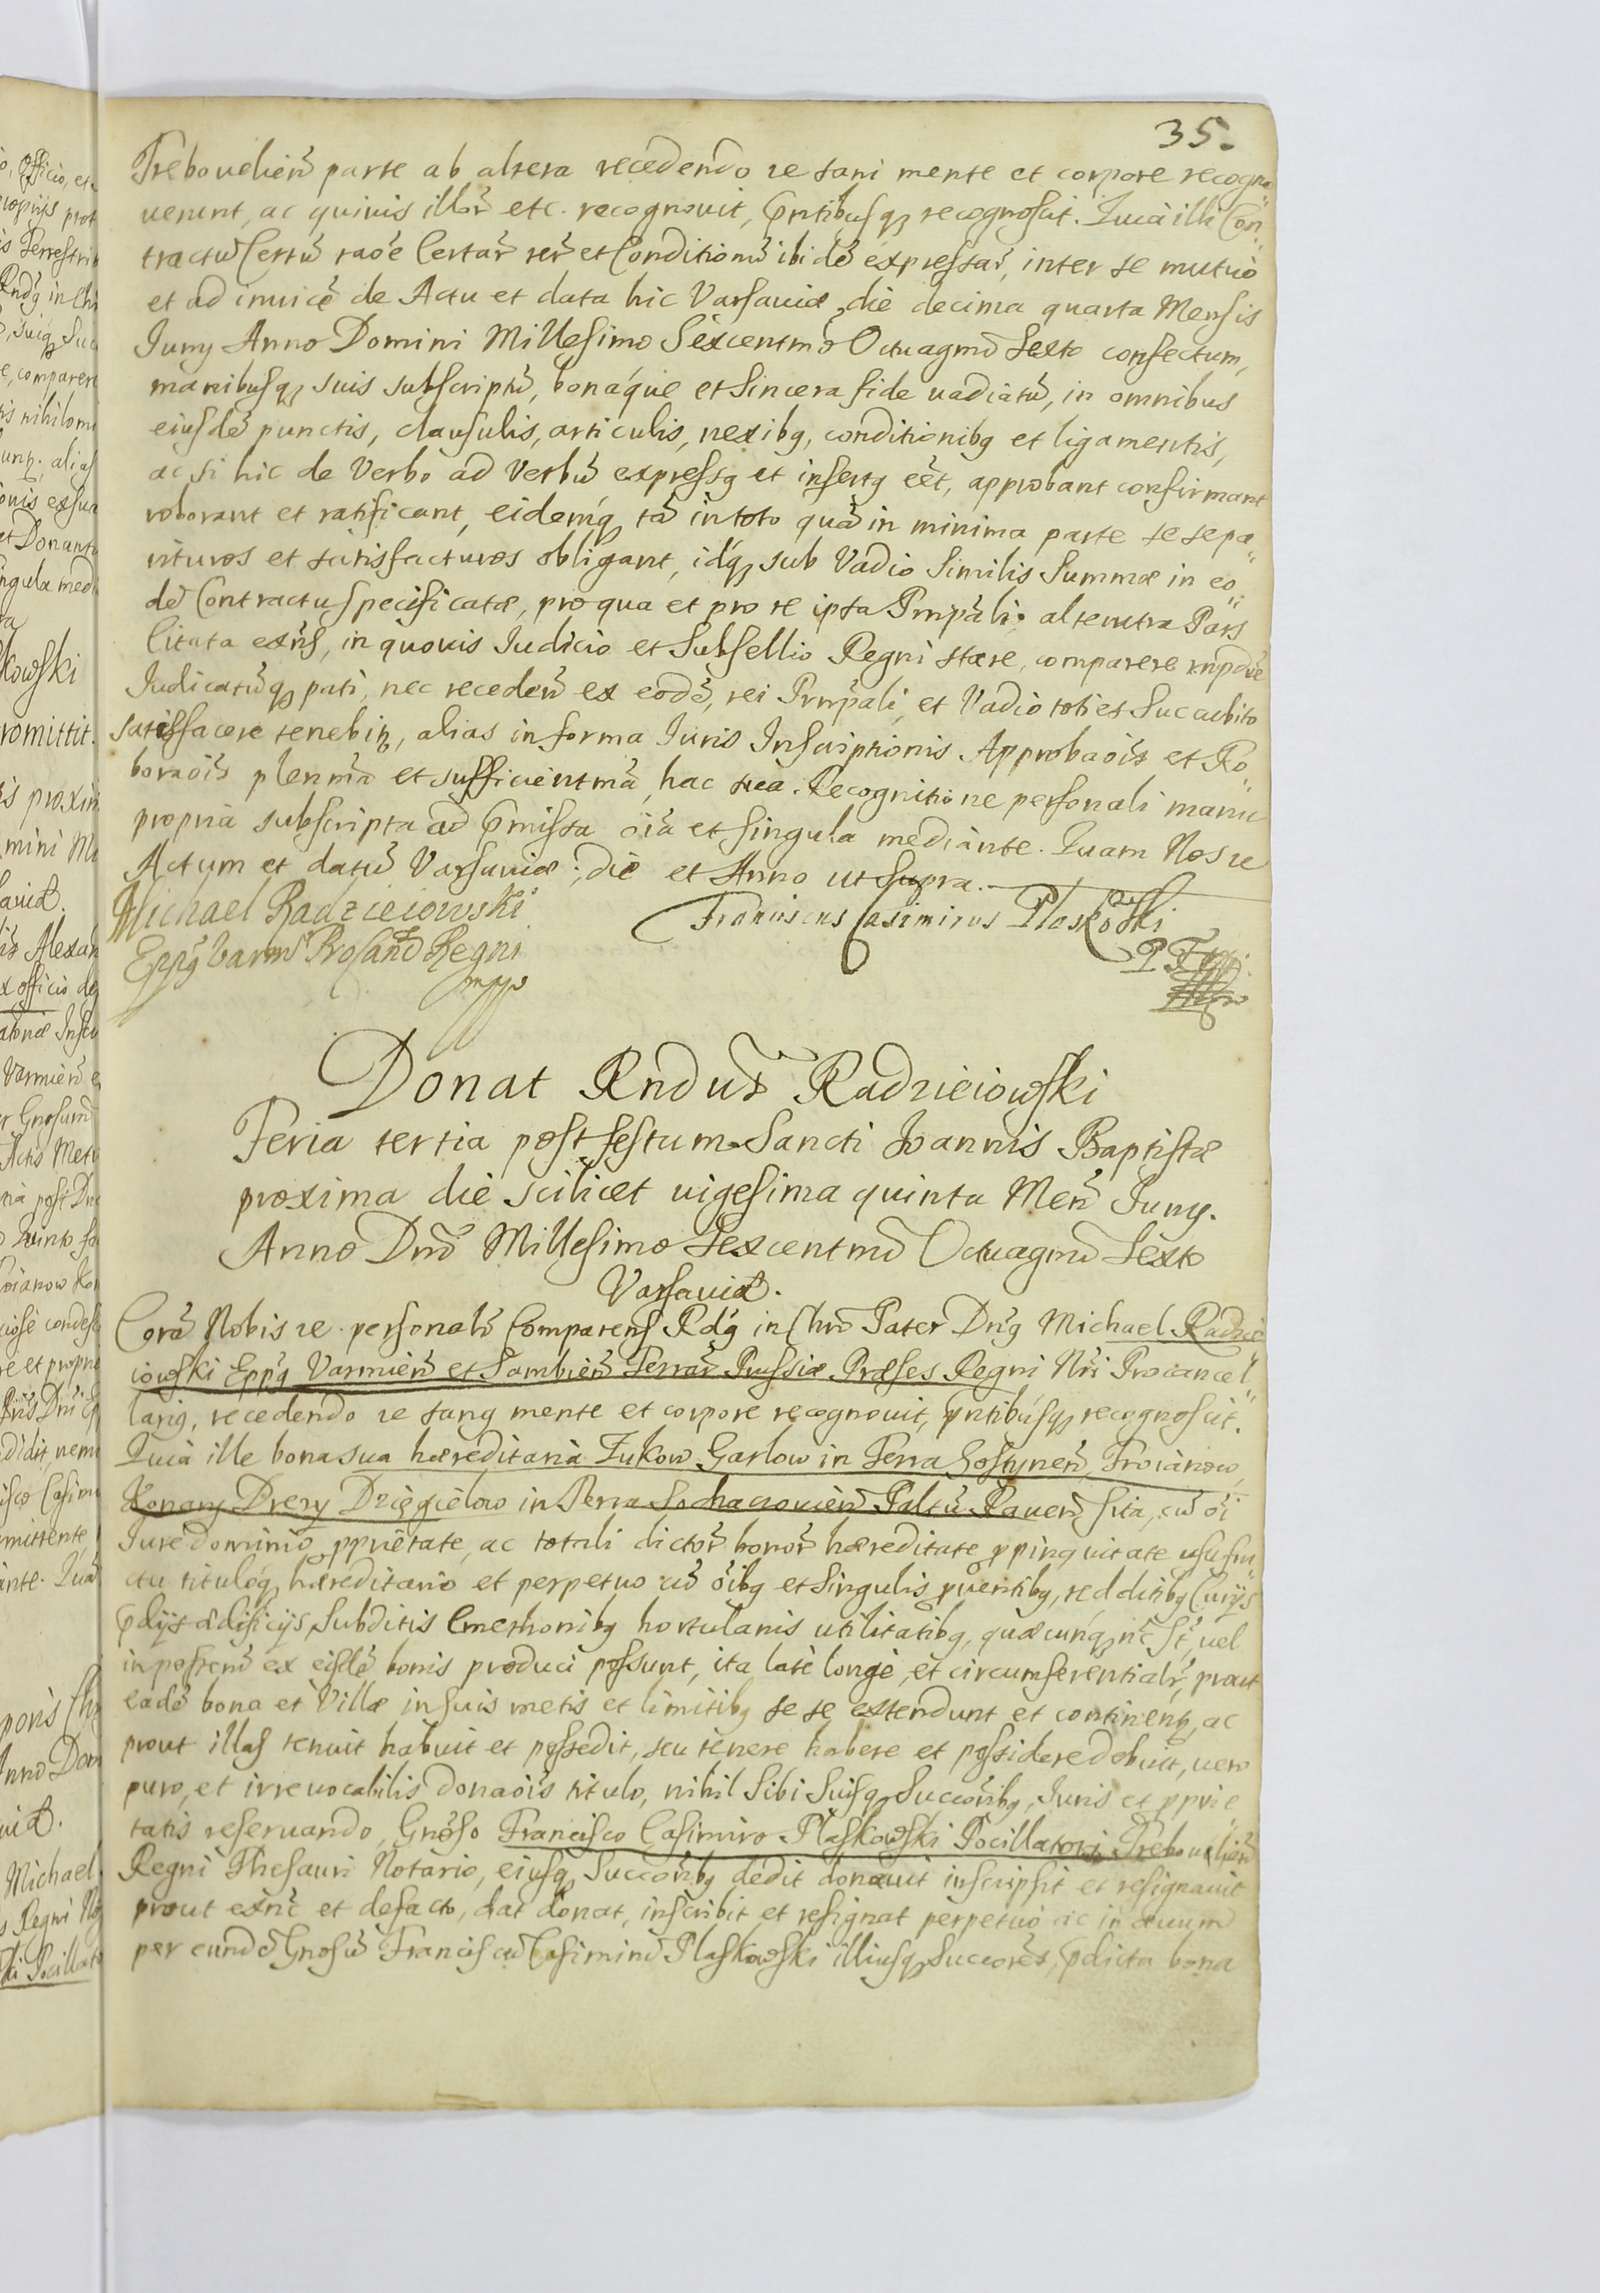 35.
Trebouelien̄ parte ab altera recedendo re sani mente et corpore recogno
uerunt, ac quiuis illōr etc. recognouit, p̄ntibusq, recognoscit. Quia illi Con
tractū Certū raōe Certar̄ rer̄ et Conditionū ibidē expressar̄, inter se mutuò
et ad inuicē de Actu et data hic Varsauiæ, die decima quarta Mensis
Iuny Anno Domini Millesimo Sexcentmō Octuagmō Sexto confectum,
manibusq, suis subscriptū, bonáque et sincera fide uadiatū, in omnibus
eiusdē punctis, clausulis, articulis, nexibq, conditionibq et ligamentis,
ac si hic de Verbo ad Verbū expressq et insertq eēt, approbant confirmant
roborant et ratificant, eidemq, tā in toto quā in minima parte se se pa
rituros et satisfacturos obligant, idq, sub Vadio similis Summæ in eo
dē Contractu specificatæ, pro qua et pro re ipsa Prnp̄ali, alterutra Pars
citata exn̄s, in quouis Iudicio et Subsellio Regni stare, comparere rnpdēre
Iudicatūq, pati, nec receden̄ ex eodē, rei Prnp̄ali, et Vadio toties Succubito
satisfacere tenebiq, alias in forma Iuris Inscriptionis Approbaōis et Ro
boraōis plenm̄a et sufficientm̄a, hac sua Recognitione personali manu
propria subscripta ad p̄missa oīa et singula mediante. Quam Nos re
Actum et datū Varsauiæ, die et Anno ut supra.
Michael Radzieiowski
Eppq Varmn̄ Procanc Regni
mpp
Franciscus Casimirus Plaskowski
P T
mpp
Donat Rndus Radzieiowski
Feria tertia post festum Sancti Ioannis Baptistæ
proxima die scilicet uigesima quinta Men̄ Iuny.
Anno Dnī Millesimo Sexcentmō Octuagmō Sexto
Varsauiæ.
Corā Nobis re personalr̄ Comparens Rdq in Chrō Pater Dn̄q Michael Radzie
iowski Eppq Varmien̄ et Sambien̄ Terrar̄ Prussiæ Præses Regni Nrī Procancel
lariq, recedendo re sanq mente et corpore recognouit, p̄ntibusq, recognoscit.
Quia ille bona sua hæreditaria Zukow Garlow in Terra Gostynen̄, Troianow,
Konary Drery Dzięgielow in Terra Sochacouien̄ Paltū Rauen̄ sita, cū oī
Iure dominio, pprietate, ac totali dictor̄ bonor̄ hæreditate ppinquitate usufru
ctu tituloq, hæreditario et perpetuo cū oībq et singulis puentibq, redditibq Curijs
p̄dijs ædificijs, Subditis Cmethonibq hortulanis utilitatibq, quæcunq, nc̄ st̄, uel
in posterū ex eisdē bonis produci possunt, ita latè longè, et circumferentialr̄, prout
eadē bona et Villæ in suis metis et limitibq se se extendunt et continenq, ac
prout illas tenuit habuit et possedit, seu tenere habere et possidere debuit, uero
puro, et irreuocabilis donaōis titulo, nihil sibi suisq, Succōribq, Iuris et pprie
tatis reseruando, Gnōso Francisco Casimiro Plaskowski Pocillatori Trebouelien̄
Regni Thesauri Notario, eiusq, Succōribq dedit donauit inscripsit et resignauit
prout exnc̄ et defacto, dat donat, inscribit et resignat perpetuò ac in æuum
per eundē Gnōsū Franciscū Casimirū Plaskowski illiusq, Succōres, p̄dicta bona